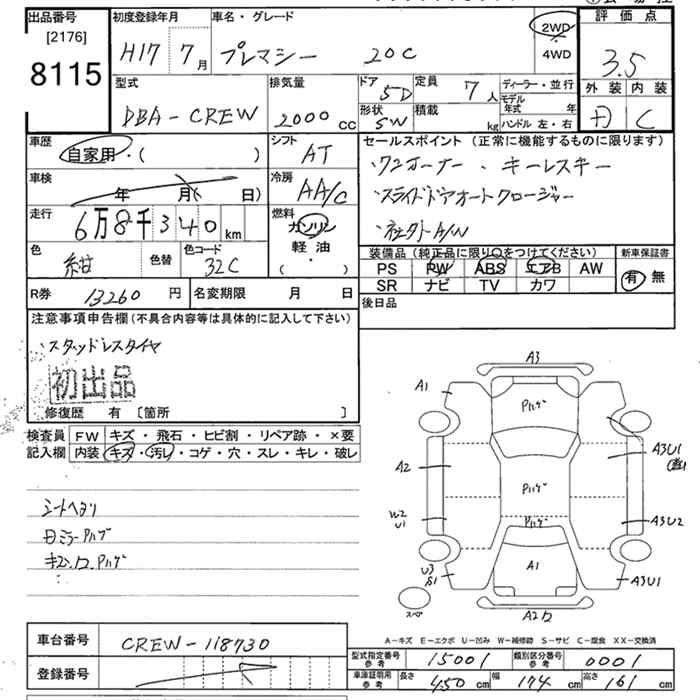 出品番号
[2176]
8115
初度登録年月
H17 7月
車名・グレード
プレマシー 20C
2WD
4WD
評価点
3.5
外装 内装
C
型式
DBA-CREW
排気量
2000 cc
ドア
5D
形状
SW
定員
7人
積載
kg
ディーラー・並行
モデル年式 年
ハンドル 左・右
車歴
自家用・( )
シフト
AT
車検
年 月( 日)
冷房
AA/C
走行
6万8千340km
燃料
ガソリン
軽油
( ・ )
色
紺
色替
色コード
32C
セールスポイント(正常に機能するものに限ります)
・ワンオーナー ・キーレスキー
・スライドドアオートクロージャー
・社外A/W
装備品(純正品に限り○をつけてください)
PS PW ABS エアB AW
SR ナビ TV カワ
新車保証書
有 無
R券 13260円
名変期限 月 日
後日品
注意事項申告欄(不具合内容等は具体的に記入して下さい)
・スタッドレスタイヤ
初出品
修復歴 有 [箇所 ]
検査員記入欄
FW キズ・飛石・ヒビ割・リペア跡・×要
内装 キズ・汚レ・コゲ・穴・スレ・キレ・破レ
シートヘタリ
日ミラーPハゲ
A3
A1
Pハゲ
A2
Pハゲ
A3U1
W2
U1
Pハゲ
A3U2
U3
S1
A1
A3U1
スペ
A2
A-キズ E-エクボ U-凹み W-補修跡 S-サビ C-腐食 XX-交換済
車台番号
CREW-118730
登録番号
型式指定番号
参考
15001
類別区分番号
参考
0001
車庫証明用
参考
長さ 450cm 幅 174cm 高さ 161cm